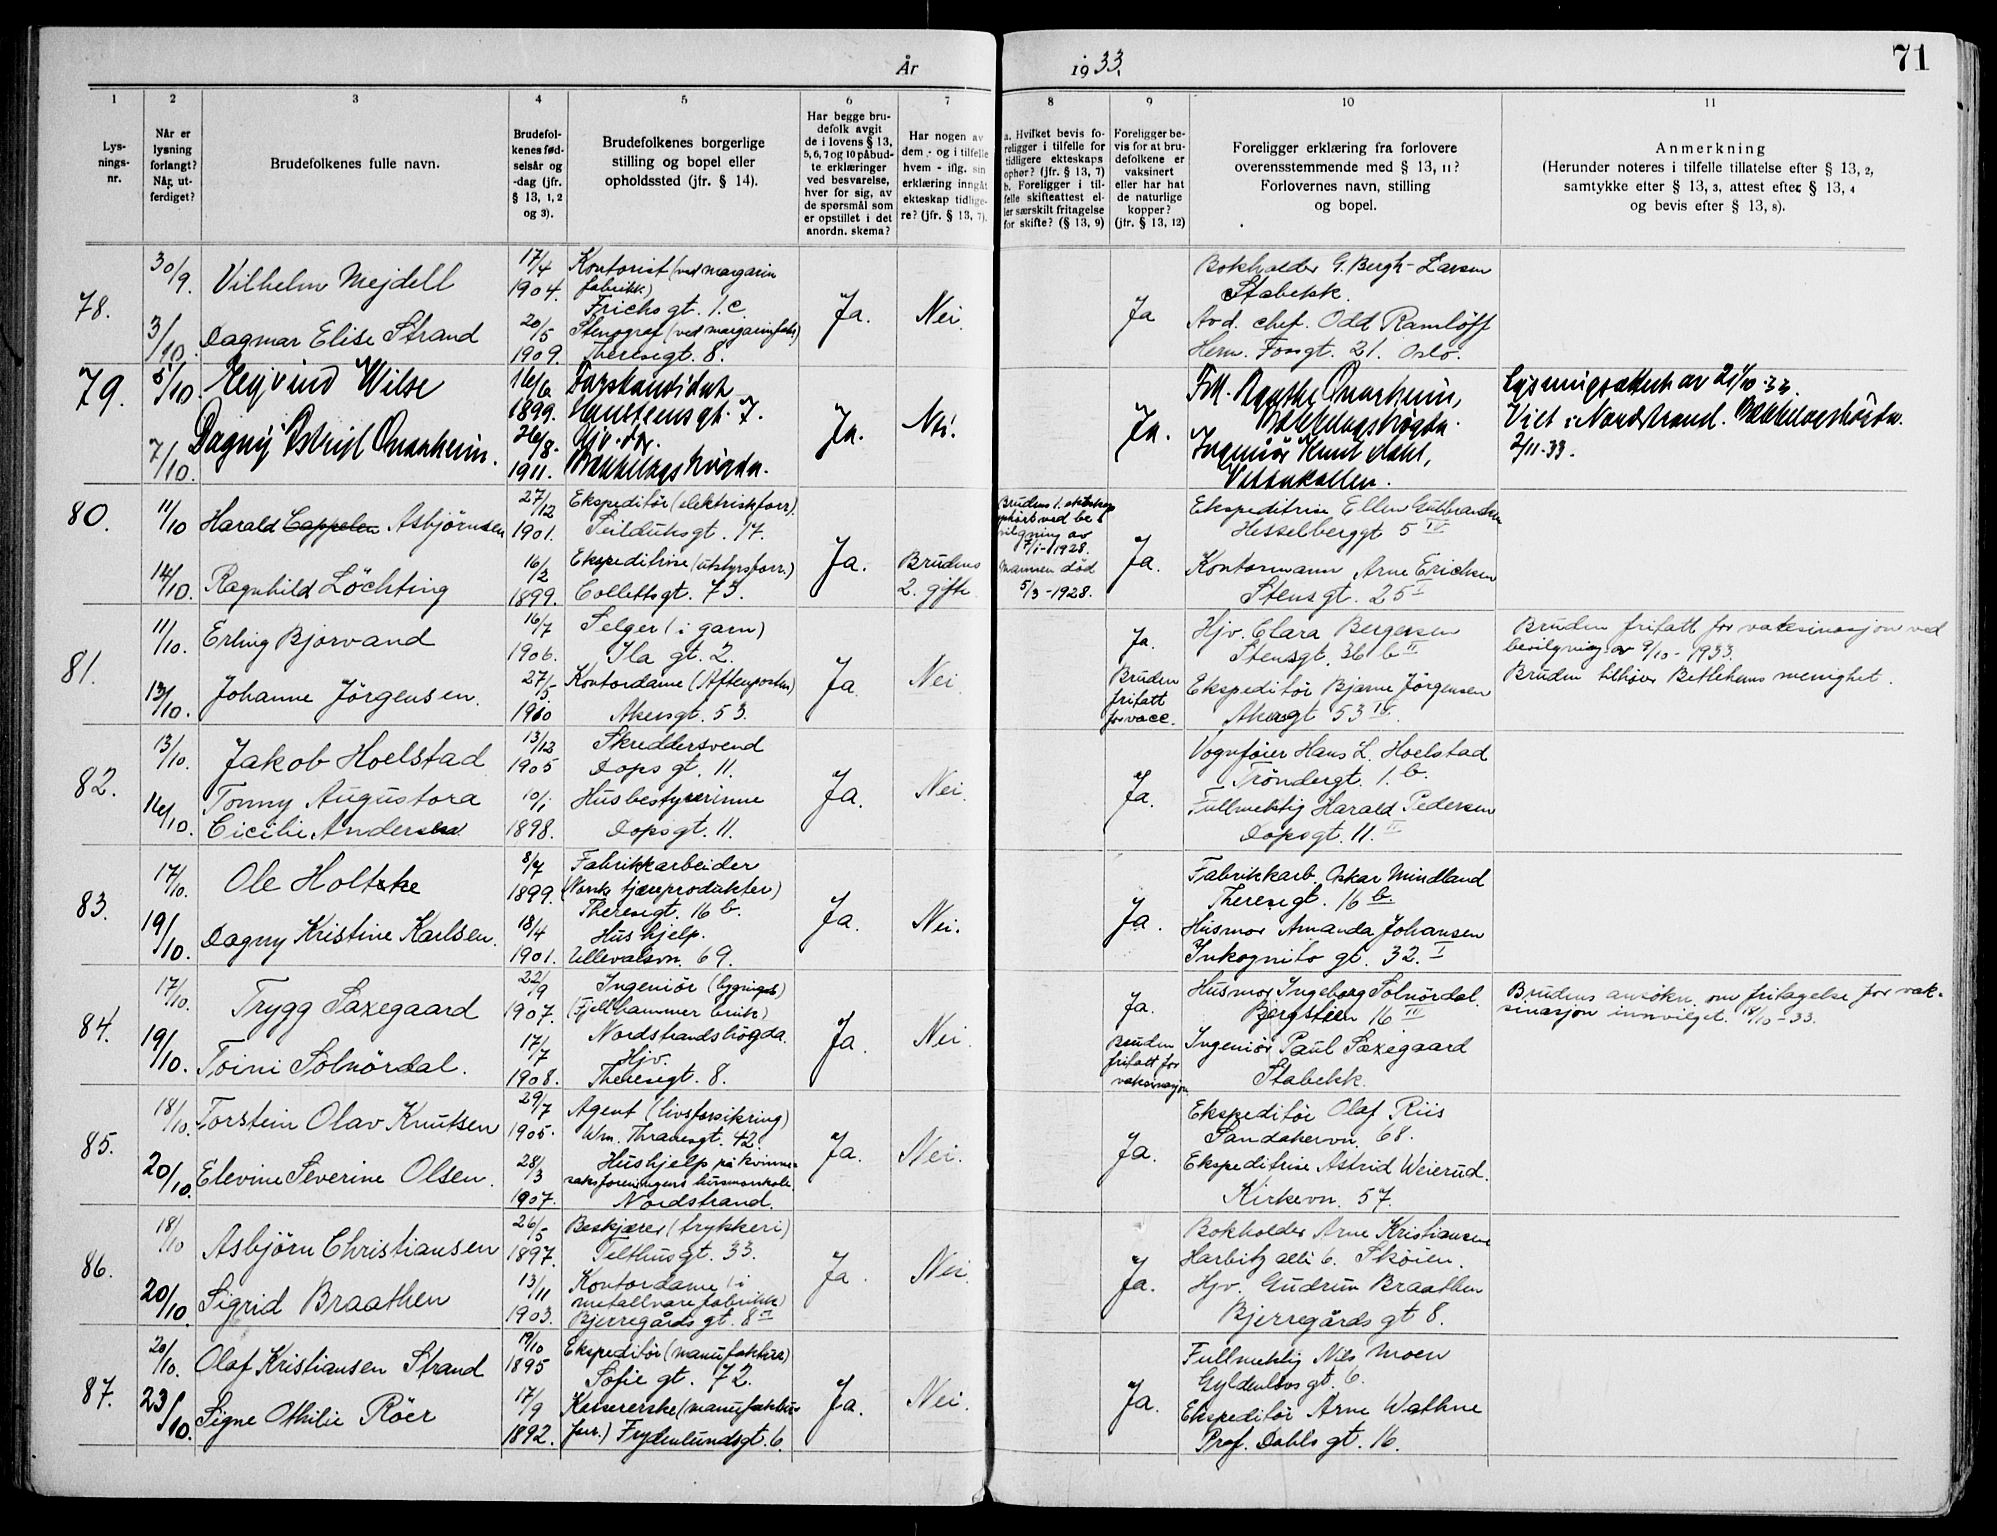 År 1933.
71
1 2 3 4 5 6 7 8 9 10 11
Lys-
nings-
nr.
Når er
lysning
forlangt?
Når ut-
ferdiget?
Brudefolkenes fulle navn.
Brudefol-
kenes fød-
selsår og
-dag (jfr.
§ 13, 1, 2
og 3).
Brudefolkenes borgerlige
stilling og bopel eller
opholdssted (jfr. § 14).
Har begge bru-
defolk avgit
de i lovens § 13,
5, 6, 7 og 10 påbud-
te erklæringer
ved besvarelse,
hver for sig, av
de spørsmål som
er opstillet i det
anordn. skema?
Har nogen av
dem - og i tilfelle
hvem - iflg. sin
erklæring inngåt
ekteskap tidlige-
re? (jfr. § 13, 7).
a. Hvilket bevis fo-
religger i tilfelle for
tidligere ekteskaps
ophør? (jfr. § 13, 7)
b. Foreligger i til-
felle skifteattest el-
ler særskilt fritagelse
for skifte? (§ 13, 9)
Foreligger be-
vis for at bru-
defolkene er
vaksinert
eller har hat
de naturlige
kopper?
(jfr. § 13, 12)
Foreligger erklæring fra forlovere
overensstemmende med § 13, 11?
Forlovernes navn, stilling
og bopel.
Anmerkning
(Herunder noteres i tilfelle tillatelse efter § 13, 2,
samtykke efter § 13, 3, attest efter § 13, 4
og bevis efter § 13, 8).
78.
30/9.
3/10.
Vilhelm Mejdell
Dagmar Elise Strand
17/4
1904.
20/5
1909.
Kontorist (ved margarin
fabrikk)
Frichs gt. 1.c.
Stenograf (ved margarinfabr)
Theresegt. 8.
Ja.
Nei.
Ja
Bokholder G. Bergh-Larsen
Stabekk.
Avd. chef. Odd Ramlöff
Herm. Fossgt. 21. Oslo.
79.
5/10
7/10.
Eyvind Wilse
Dagny Astrid Omarheim.
16/6
1899.
26/8.
1911.
Forstkandidat
Hansteensgt. 7.
Hjv. dtr.
Bekkelagshøgda.
Ja.
Nei.
Ja.
Frk. Agathe Omarheim,
Bekkelagshøgda.
Ingeniør Knut Dahl,
Vettakollen.
Lysningsattest av 21/10-33.
Viet i Nordstrand. Bekkelagshøgda.
2/11-33.
80.
11/10
14/10.
Harald Cappelen Asbjørnsen
Ragnhild Löchting
27/12
1901.
16/2
1899.
Ekspeditör (elektriskforr).
Seilduksgt. 17.
Ekspeditrise (utstyrsforr.)
Collettsgt. 73.
Ja.
Brudens
2. gifte
Brudens 1. ekteskap
ophört ved be-
vilgning av
7/1-1928.
Mannen död
5/3-1928.
Ja.
Ekspeditrise Ellen Gulbrandsen
Hesselberggt 5 IV
Kontormann Arne Erichsen
Stensgt. 25 I
81.
11/10.
13/10.
Erling Bjorvand
Johanne Jörgensen.
16/7
1906.
27/5
1910
Selger (i garn)
Ila gt. 2.
Kontordame (Aftenposten)
Akersgt. 53.
Ja
Nei
Ja.
Bruden
fritatt
for vacc.
Hjv. Clara Bergersen
Stensgt. 36 b II
Ekspeditör Bjarne Jörgensen
Akersgt 53 IV.
Bruden fritatt for vaksinasjon ved
bevilgning av 9/10-1933.
Bruden tilhörer Betlehems menighet.
82.
13/10.
16/10.
Jakob Hoelstad
Tonny Augustora
Cicilie Andersen
13/12
1905
10/1
1898.
Skreddersvend
Dops gt. 11.
Husbestyrerinne
Dopsgt. 11.
Ja.
Nei.
Ja.
Vognføier Hans L. Hoelstad
Tröndergt. 1. b.
Fullmektig Harald Pedersen
Dopsgt. 11. II
83.
17/10.
19/10
Ole Holtske
Dagny Kristine Karlsen.
8/7
1899.
18/4
1901.
Fabrikkarbeider
(Norsk tjæreprodukter)
Theresegt. 16 b.
Hushjelp.
Ullevålsvn. 69.
Ja.
Nei.
Ja.
Fabrikkarb. Oskar Mindland
Theresegt. 16 b.
Husmor Amanda Johansen
Inkognito gt. 32. I
84.
17/10.
19/10.
Trygg Saxegaard
Toini Solnördal.
22/9
1907.
17/7
1908.
Ingeniör (bygnings)
(Fjellhammer bruk)
Nordstrandshögda.
Hjv.
Theresegt. 8.
Ja.
Nei
Ja.
Bruden
fritatt for
vaksinasjon
Husmor Ingeborg Solnördal.
Bergstien 16 III
Ingeniör Paul Saxegaard
Stabekk.
Brudens ansökn. om fritagelse for vak-
sinasjon innvilget. 18/10-33.
85.
18/10.
20/10
Torstein Olav Knutsen
Elevine Severine Olsen.
29/7
1905.
28/3
1907.
Agent (livsforsikring)
Wm. Thranesgt. 42.
Hushjelp på kvinne-
saksforeningens husmorskole.
Nordstrand.
Ja.
Nei.
Ja.
Ekspeditör Olaf Riis
Sandakervn. 68.
Ekspeditrise Astrid Weierud.
Kirkevn. 57.
86.
18/10
20/10.
Asbjörn Christiansen
Sigrid Braathen
26/5
1897.
13/11
1903.
Beskjærer (trykkeri)
Telthusgt. 33.
Kontordame (i
metallvarefabrikk)
Bjerregårds gt. 8 II
Ja.
Nei.
Ja.
Bokholder Arne Kristiansen
Harbitz allé 6. Sköien.
Hjv. Gudrun Braathen
Bjerregårds gt 8.
87.
20/10.
23/10.
Olaf Kristiansen Strand
Signe Othilie Röer
19/10
1895
17/9
1892.
Ekspeditör (manufaktur)
Sofie gt. 72.
Kassererske (manufaktur-
forr.) Frydenlundsgt. 6.
Ja.
Nei.
Ja.
Fullmektig Nils Moen
Gyldenlovs gt. 6.
Ekspeditör Arne Wathne
Prof. Dahls gt. 16.